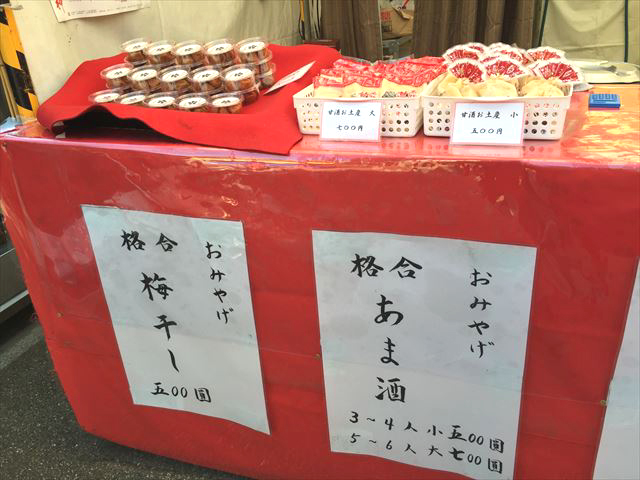 甘酒お土産 大
七〇〇円
甘酒お土産 小
五〇〇円
おみやげ
格合
梅干し
五00圓
おみやげ
格合
あま酒
3〜4人小五00圓
5〜6人大七00圓